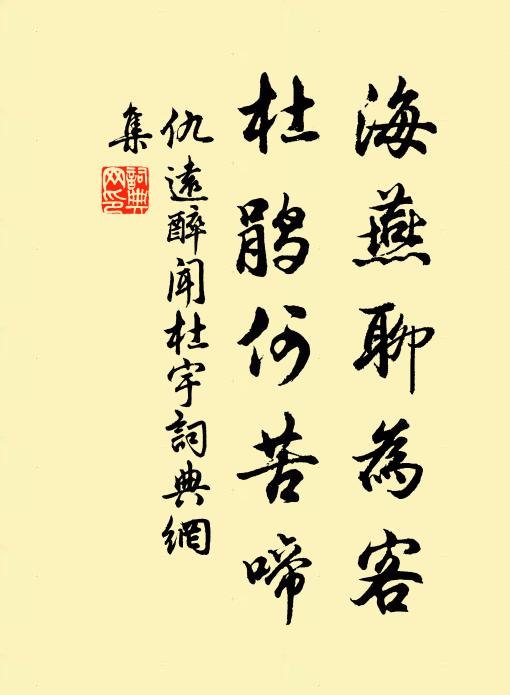 海燕聊為客
杜鵑何苦啼
仇遠醉聞杜宇詞典網
集
詞典
网印